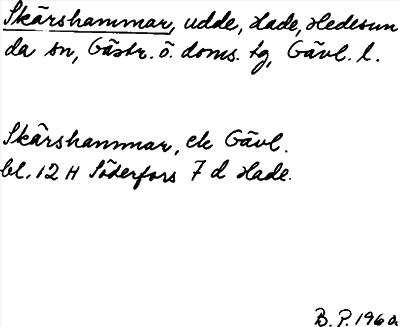 Skärshammar, udde, Hade, Hedesun
da sn, Gästr. ö. doms. tg, Gävl. l.
Skärshammar, ek Gävl.
bl. 12 H Söderfors 7 d Hade.
B. P. 1960.